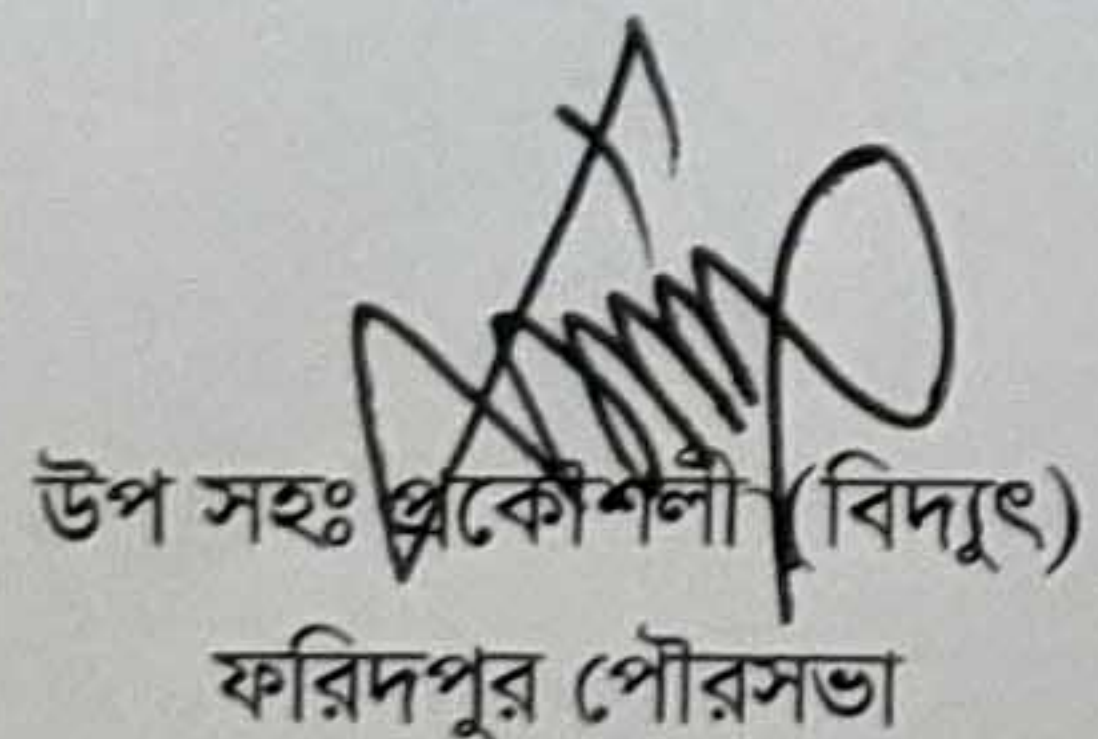 উপ সহঃ প্রকৌশলী (বিদ্যুৎ)
ফরিদপুর পৌরসভা